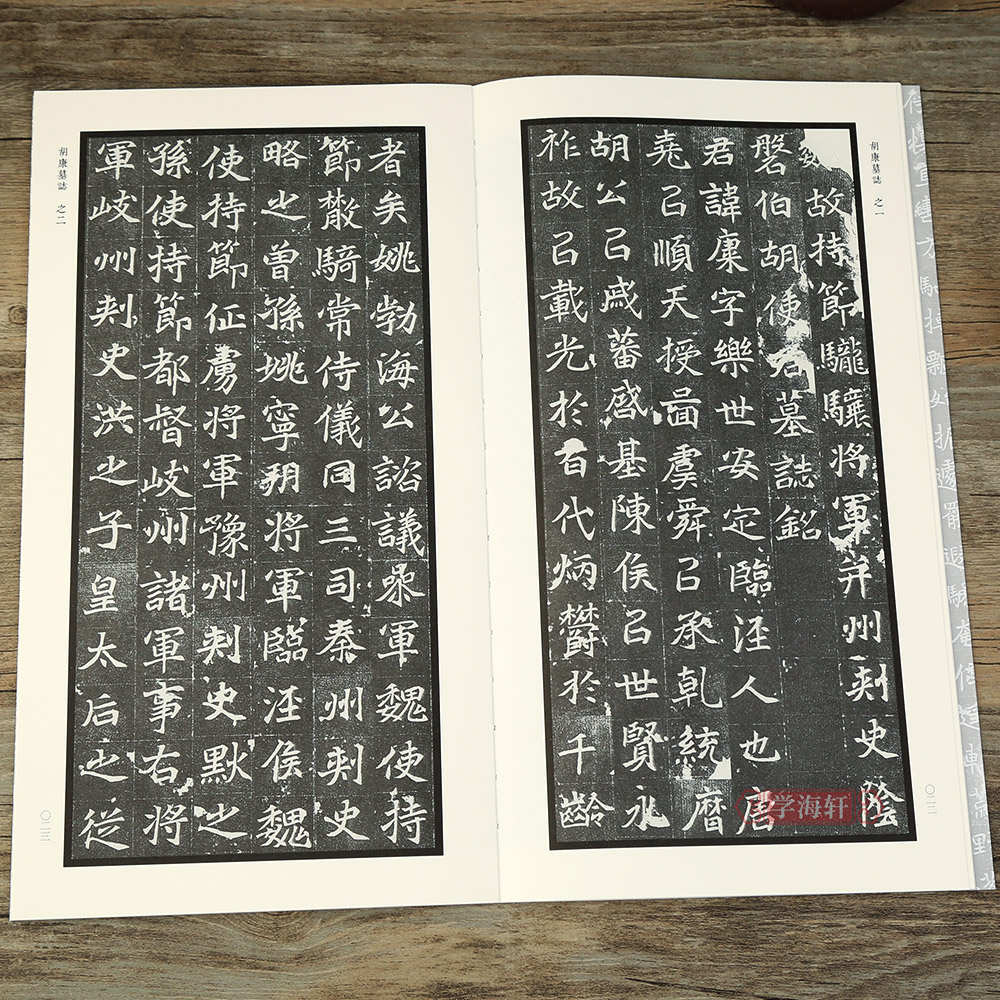 胡康墓誌 之一
故持節䮾驤將軍并州刺史陰
磐伯胡使君墓誌銘
君諱康字樂世安定臨涇人也唐
堯㠯順天授啚虞舜㠯承乹統曆
胡公㠯戚蕃啓基陳侯㠯世賢永
祚故㠯載光於百代炳欝於千齡
〇二二
胡康墓誌 之二
者矣姚勃海公諮議參軍魏使持
節散騎常侍儀同三司秦州刺史
略之曾孫姚寧朔將軍臨涇侯魏
使持節征虜將軍豫州刺史默之
孫使持節都督岐州諸軍事右將
軍岐州刺史洪之子皇太后之從
〇二三
学海轩